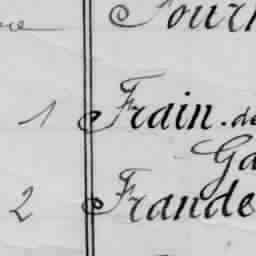 1 Frain. de
Ga
2 Frande